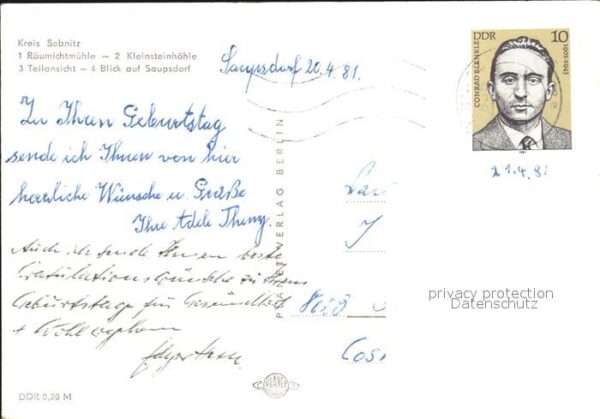 Kreis Sebnitz
1 Räumichtmühle — 2 Kleinsteinhöhle
3 Teilansicht — 4 Blick auf Saupsdorf
Saupsdorf 20.4.81.
DDR 10
CONRAD BLENKLE 1901-1943
21.4.81
Zu Ihrem Geburtstag
sende ich Ihnen von hier
herzliche Wünsche u. Grüße
Ihre Adele
Auch ich sende Ihnen beste
Gratulationswünsche zu Ihrem
Geburtstage für Gesundheit
+ Wohlergehen
VERLAG BERLIN
privacy protection
Datenschutz
PLANET
DDR 0,20 M